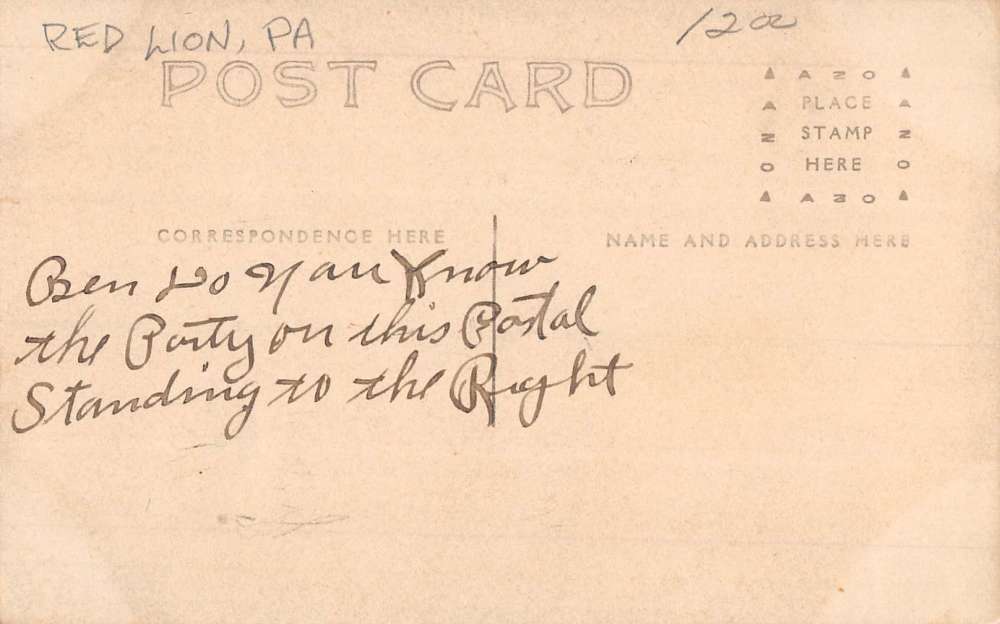 RED LION, PA
12 00
POST CARD
AZO
PLACE
STAMP
HERE
AZO
CORRESPONDENCE HERE
NAME AND ADDRESS HERE
Ben do you Know
the Party on this Postal
Standing to the Right